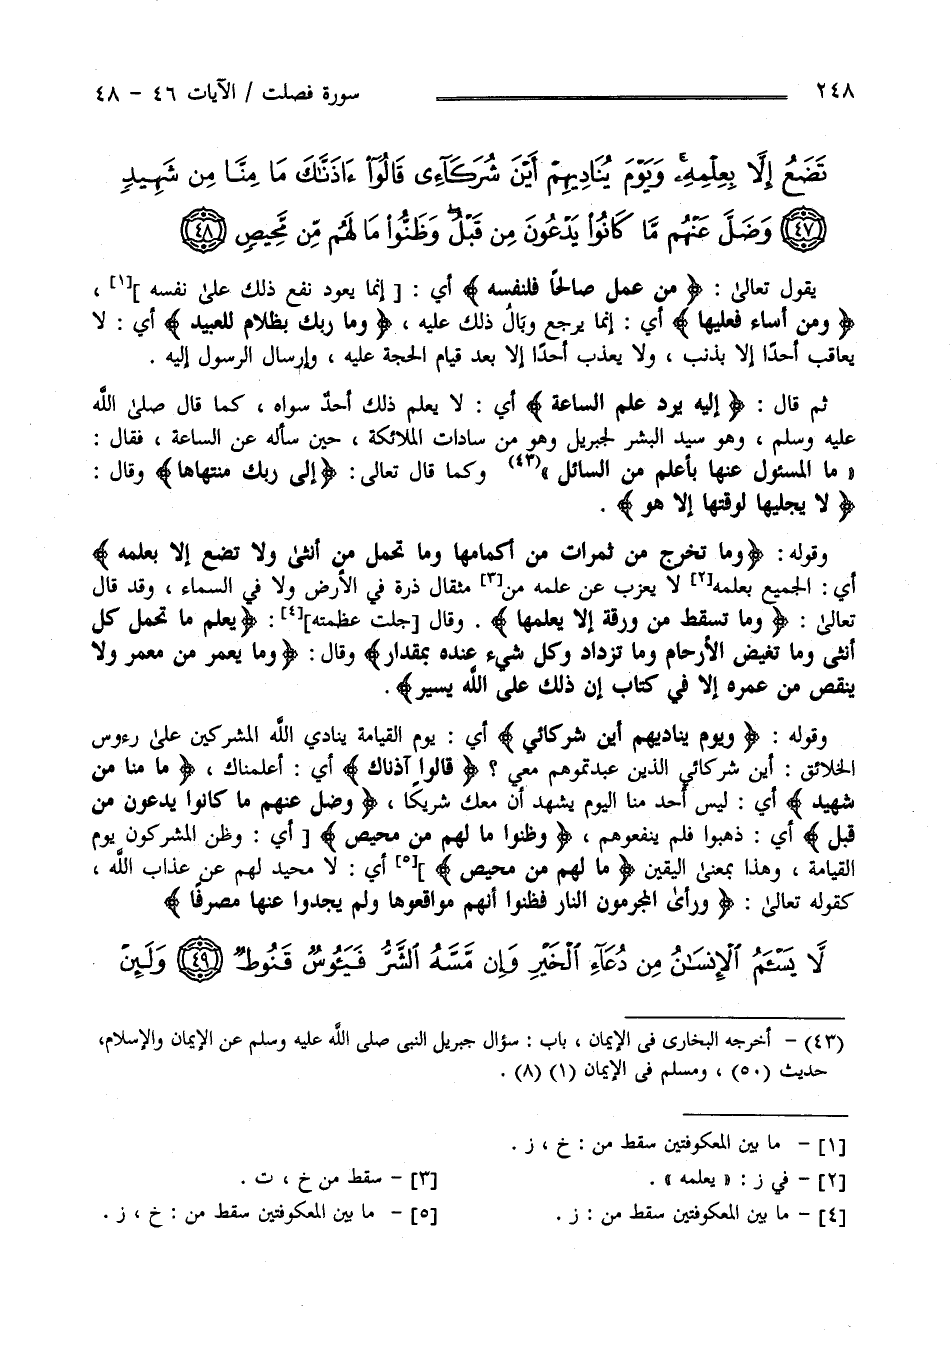 ٢٤٨ سورة فصلت / الآيات ٤٦ - ٤٨
تَضَعُ إِلَّا بِعِلْمِهِۦۚ وَيَوْمَ يُنَادِيهِمْ أَيْنَ شُرَكَآءِى قَالُوٓاْ ءَاذَنَّٰكَ مَا مِنَّا مِن شَهِيدٍ
﴿٤٧﴾ وَضَلَّ عَنْهُم مَّا كَانُواْ يَدْعُونَ مِن قَبْلُۖ وَظَنُّواْ مَا لَهُم مِّن مَّحِيصٍ ﴿٤٨﴾
يقول تعالىٰ : ﴿ من عمل صالحًا فلنفسه ﴾ أي : [ إنما يعود نفع ذلك علىٰ نفسه ][١] ،
﴿ ومن أساء فعليها ﴾ أي : إنما يرجع وبَالُ ذلك عليه ، ﴿ وما ربك بظلام للعبيد ﴾ أي : لا
يعاقب أحدًا إلا بذنب ، ولا يعذب أحدًا إلا بعد قيام الحجة عليه ، وإرسال الرسول إليه .
ثم قال : ﴿ إليه يرد علم الساعة ﴾ أي : لا يعلم ذلك أحدٌ سواه ، كما قال صلىٰ اللَّه
عليه وسلم ، وهو سيد البشر لجبريل وهو من سادات الملائكة ، حين سأله عن الساعة ، فقال :
« ما المسئول عنها بأعلم من السائل »(٤٣) وكما قال تعالى : ﴿إلى ربك منتهاها﴾ وقال :
﴿ لا يجليها لوقتها إلا هو ﴾ .
وقوله : ﴿وما تخرج من ثمرات من أكمامها وما تحمل من أنثىٰ ولا تضع إلا بعلمه ﴾
أي : الجميع بعلمه[٢] لا يعزب عن علمه من[٣] مثقال ذرة في الأرض ولا في السماء ، وقد قال
تعالىٰ : ﴿ وما تسقط من ورقة إلا يعلمها ﴾ . وقال [جلت عظمته][٤] : ﴿يعلم ما تحمل كل
أنثى وما تغيض الأرحام وما تزداد وكل شيء عنده بمقدار﴾ وقال : ﴿وما يعمر من معمر ولا
ينقص من عمره إلا في كتاب إن ذلك على اللَّه يسير﴾ .
وقوله : ﴿ ويوم يناديهم أين شركائي ﴾ أي : يوم القيامة ينادي اللَّه المشركين علىٰ رءوس
الخلائق : أين شركائي الذين عبدتموهم معي ؟ ﴿ قالوا آذناك ﴾ أي : أعلمناك ، ﴿ ما منا من
شهيد ﴾ أي : ليس أحد منا اليوم يشهد أن معك شريكًا ، ﴿ وضل عنهم ما كانوا يدعون من
قبل ﴾ أي : ذهبوا فلم ينفعوهم ، ﴿ وظنوا ما لهم من محيص ﴾ [ أي : وظن المشركون يوم
القيامة ، وهذا بمعنىٰ اليقين ﴿ ما لهم من محيص ﴾ ][٥] أي : لا محيد لهم عن عذاب اللَّه ،
كقوله تعالىٰ : ﴿ ورأىٰ المجرمون النار فظنوا أنهم مواقعوها ولم يجدوا عنها مصرفًا ﴾
لَّا يَسْـَٔمُ ٱلْإِنسَٰنُ مِن دُعَآءِ ٱلْخَيْرِ وَإِن مَّسَّهُ ٱلشَّرُّ فَيَـُٔوسٌ قَنُوطٌ ﴿٤٩﴾ وَلَئِنْ
(٤٣) - أخرجه البخارى فى الإيمان ، باب : سؤال جبريل النبى صلى اللَّه عليه وسلم عن الإيمان والإسلام،
حديث (٥٠) ، ومسلم فى الإيمان (١) (٨) .
[١] - ما بين المعكوفتين سقط من : خ ، ز .
[٢] - في ز : « يعلمه » . [٣] - سقط من خ ، ت .
[٤] - ما بين المعكوفتين سقط من : ز . [٥] - ما بين المعكوفتين سقط من : خ ، ز .